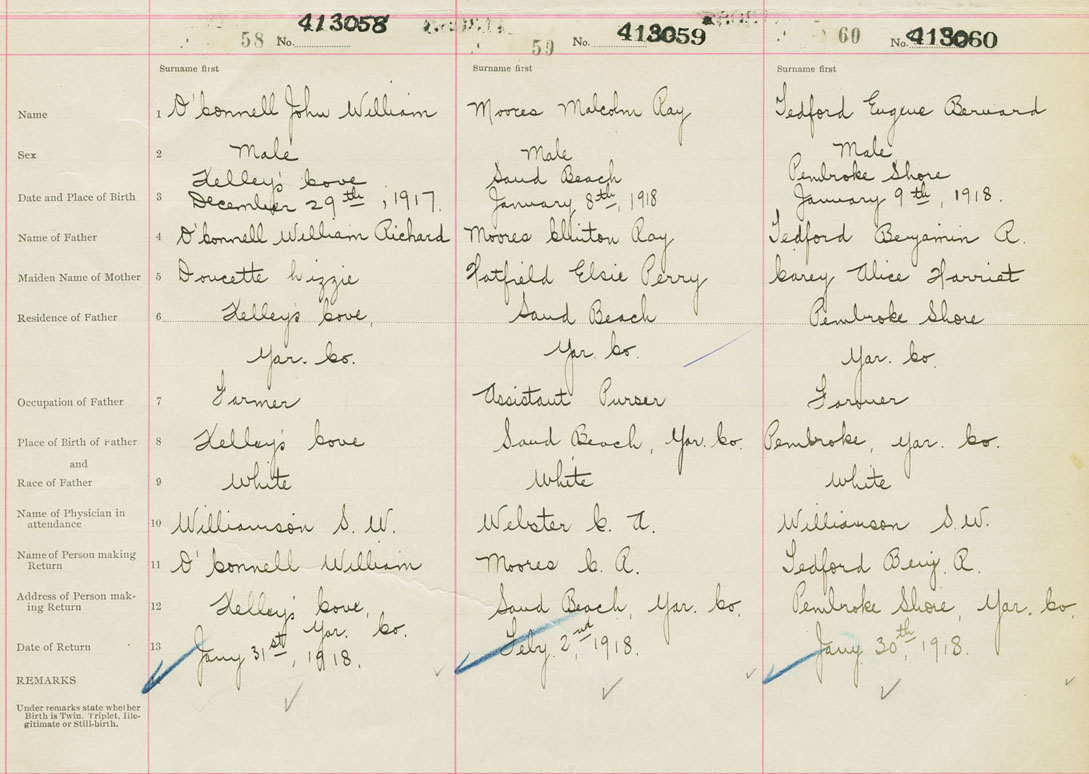 58 No. 413058
59 No. 413059
60 No. 413060
Surname first Surname first Surname first
Name 1 O'Connell John William Moores Malcolm Ray Tedford Eugene Bernard
Sex 2 Male Male Male
Kelley's Cove Sand Beach Pembroke Shore
Date and Place of Birth 3 December 29th, 1917. January 8th, 1918 January 9th, 1918.
Name of Father 4 O'Connell William Richard Moores Clinton Ray Tedford Benjamin R.
Maiden Name of Mother 5 Doucette Lizzie Hatfield Elsie Perry Carey Alice Harriet
Residence of Father 6 Kelley's Cove, Sand Beach Pembroke Shore
Yar. Co. Yar. Co. Yar. Co.
Occupation of Father 7 Farmer Assistant Purser Farmer
Place of Birth of Father 8 Kelley's Cove Sand Beach, Yar. Co. Pembroke, Yar. Co.
and
Race of Father 9 White White White
Name of Physician in
attendance 10 Williamson S. W. Webster C. A. Williamson S. W.
Name of Person making
Return 11 O'Connell William Moores C. R. Tedford Benj. R.
Address of Person mak-
ing Return 12 Kelley's Cove, Sand Beach, Yar. Co. Pembroke Shore, Yar. Co.
Yar. Co.
Date of Return 13 Jany 31st, 1918. Feby. 2nd, 1918. Jany. 30th, 1918.
REMARKS
Under remarks state whether
Birth is Twin, Triplet, Ille-
gitimate or Still-birth.